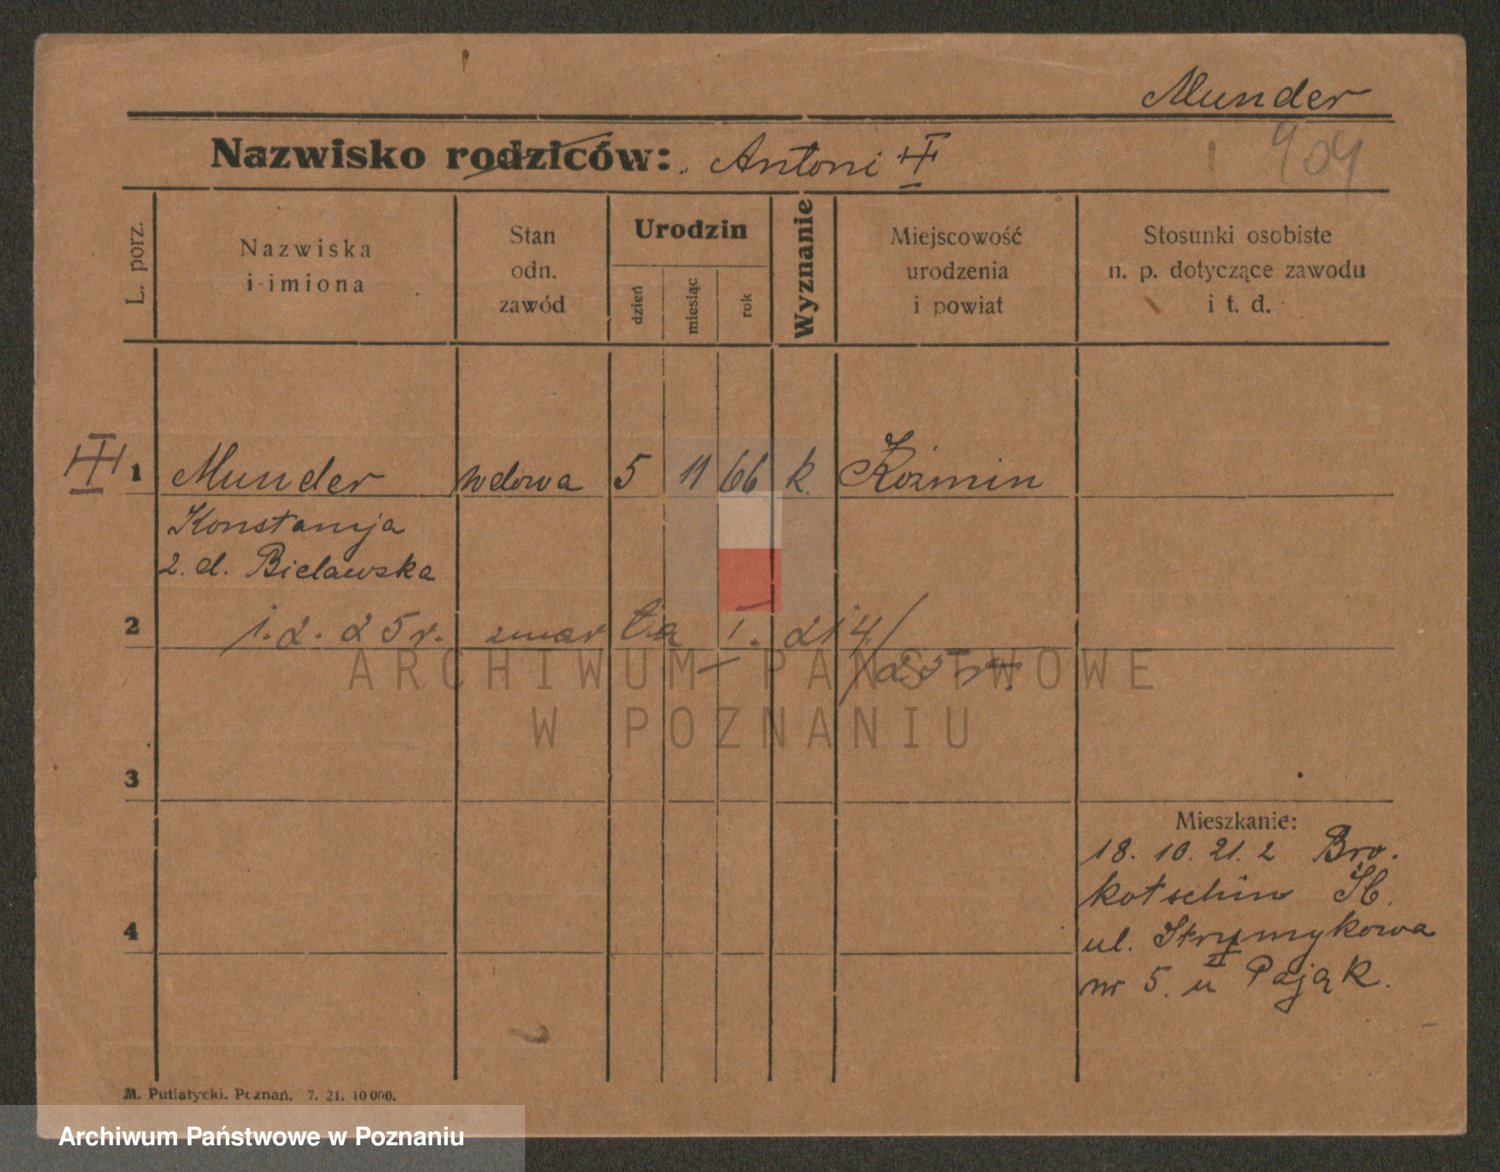 Munder
Nazwisko rodziców: Antoni
L. porz.
Nazwiska
i imiona
Stan
odn.
zawód
Urodzin
dzień
miesiąc
rok
Wyznanie
Miejscowość
urodzenia
i powiat
Stosunki osobiste
n. p. dotyczące zawodu
i t. d.
1 Munder wdowa 5 11 66 k. Koźmin
Konstancja
2. d. Bielawska
2
25 r. zmarła
25 r.
ARCHIWUM PAŃSTWOWE
W POZNANIU
3
Mieszkanie:
18. 10. 21. z Bro.
kotschin
4
ul. Strumykowa
nr 5. u Pająk.
M. Putiatycki. Poznań. 7. 21. 10 000.
Archiwum Państwowe w Poznaniu